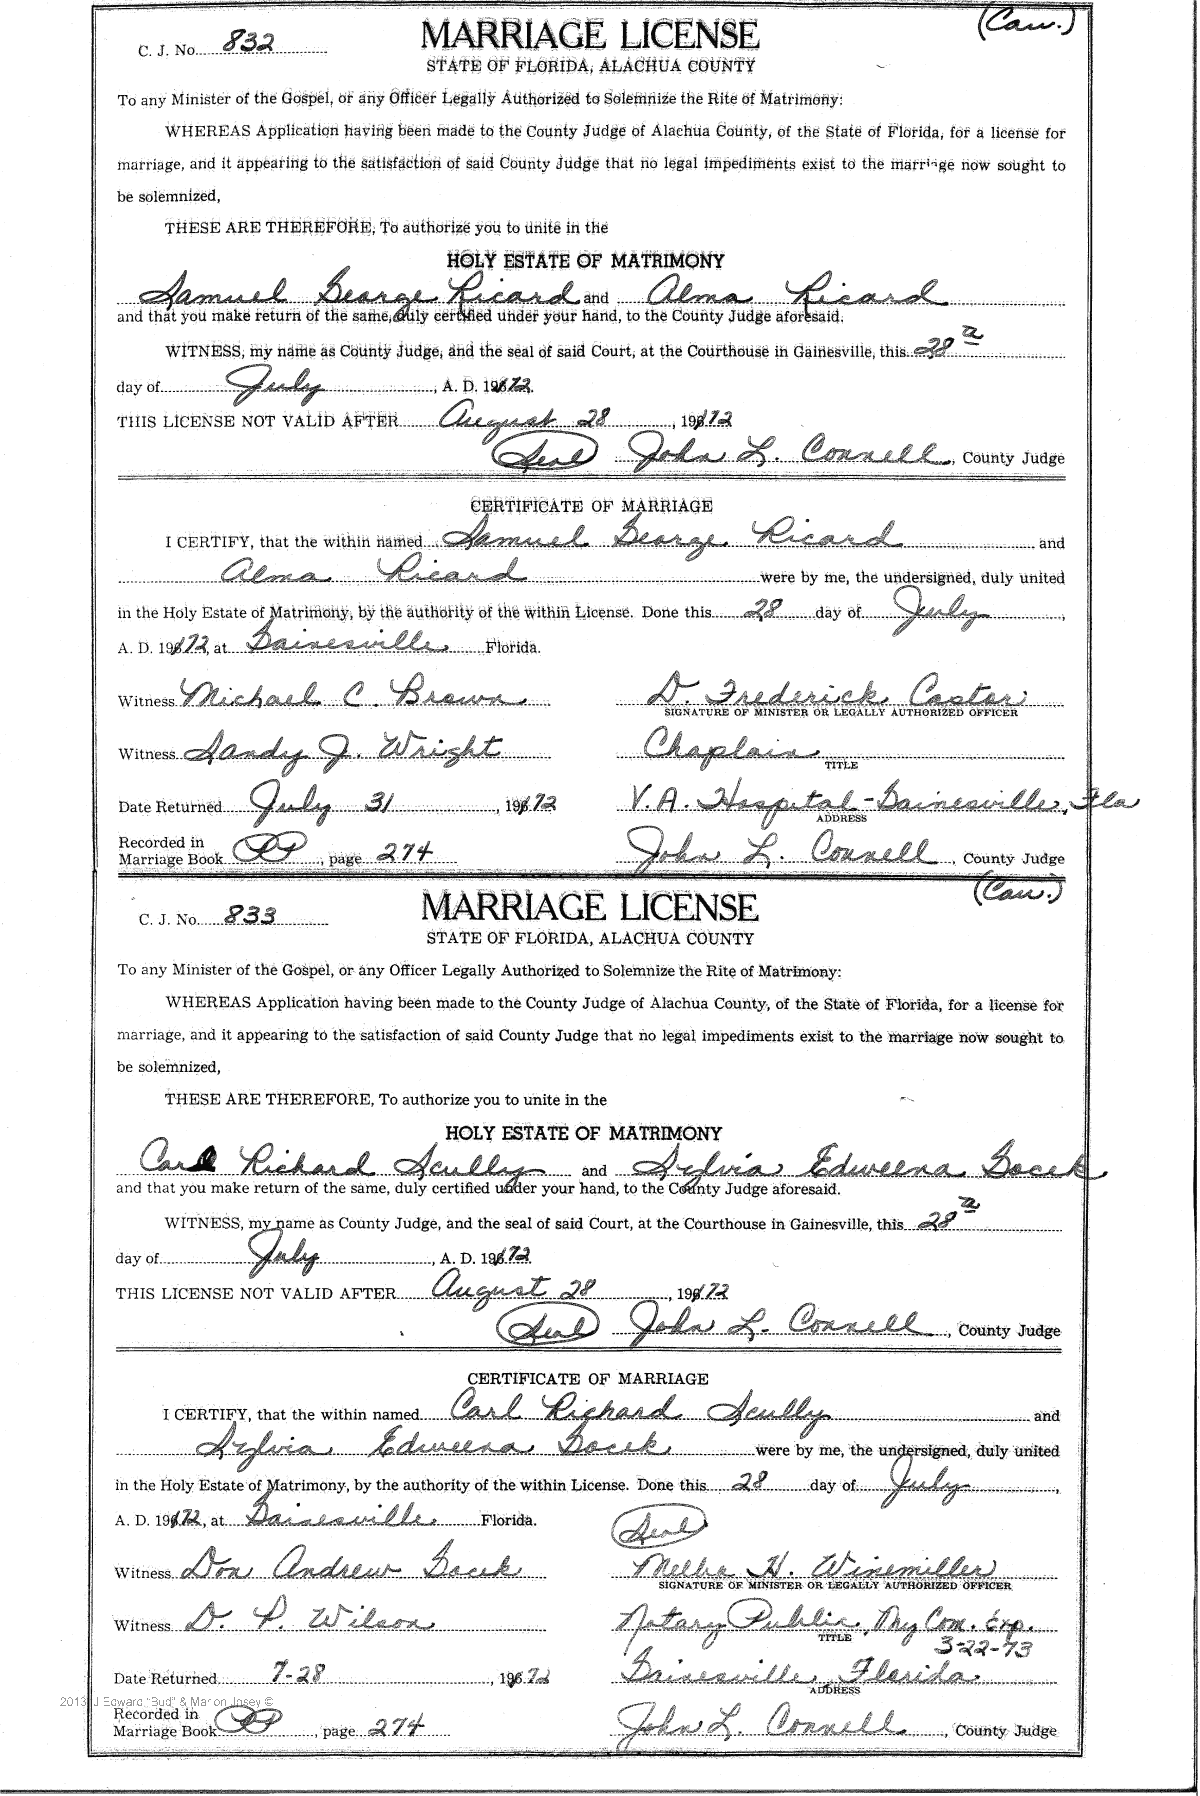 (Cau.)
C. J. No. 832
MARRIAGE LICENSE
STATE OF FLORIDA, ALACHUA COUNTY
To any Minister of the Gospel, or any Officer Legally Authorized to Solemnize the Rite of Matrimony:
WHEREAS Application having been made to the County Judge of Alachua County, of the State of Florida, for a license for
marriage, and it appearing to the satisfaction of said County Judge that no legal impediments exist to the marriage now sought to
be solemnized,
THESE ARE THEREFORE, To authorize you to unite in the
HOLY ESTATE OF MATRIMONY
Samuel George Ricard and Alma Ricard
and that you make return of the same, duly certified under your hand, to the County Judge aforesaid.
WITNESS, my name as County Judge, and the seal of said Court, at the Courthouse in Gainesville, this 28
day of July, A. D. 1972.
THIS LICENSE NOT VALID AFTER August 28, 1972
(Seal) John L. Connell, County Judge
CERTIFICATE OF MARRIAGE
I CERTIFY, that the within named Samuel George Ricard and
Alma Ricard were by me, the undersigned, duly united
in the Holy Estate of Matrimony, by the authority of the within License. Done this 28 day of July,
A. D. 1972, at Gainesville Florida.
Witness Michael C. Brown D. Frederick Castor
SIGNATURE OF MINISTER OR LEGALLY AUTHORIZED OFFICER
Witness Sandy J. Wright Chaplain
TITLE
Date Returned July 31, 1972 V.A. Hospital-Gainesville, Fla
ADDRESS
Recorded in
Marriage Book PP, page 274 John L. Connell, County Judge
(Cau.)
C. J. No. 833
MARRIAGE LICENSE
STATE OF FLORIDA, ALACHUA COUNTY
To any Minister of the Gospel, or any Officer Legally Authorized to Solemnize the Rite of Matrimony:
WHEREAS Application having been made to the County Judge of Alachua County, of the State of Florida, for a license for
marriage, and it appearing to the satisfaction of said County Judge that no legal impediments exist to the marriage now sought to
be solemnized,
THESE ARE THEREFORE, To authorize you to unite in the
HOLY ESTATE OF MATRIMONY
Carl Richard Scully and Sylvia Edweena Gocek
and that you make return of the same, duly certified under your hand, to the County Judge aforesaid.
WITNESS, my name as County Judge, and the seal of said Court, at the Courthouse in Gainesville, this 28
day of July, A. D. 1972.
THIS LICENSE NOT VALID AFTER August 28, 1972
(Seal) John L. Connell, County Judge
CERTIFICATE OF MARRIAGE
I CERTIFY, that the within named Carl Richard Scully and
Sylvia Edweena Gocek were by me, the undersigned, duly united
in the Holy Estate of Matrimony, by the authority of the within License. Done this 28 day of July,
A. D. 1972, at Gainesville Florida.
(Seal)
Witness Don Andrew Gocek Melba H. Winemiller
SIGNATURE OF MINISTER OR LEGALLY AUTHORIZED OFFICER
Witness D. P. Wilson Notary Public, My Com. Exp.
TITLE 3-22-73
Date Returned 7-28, 1972 Gainesville, Florida
ADDRESS
2013 J Edward "Bud" & Marion Josey ©
Recorded in
Marriage Book PP, page 274 John L. Connell, County Judge